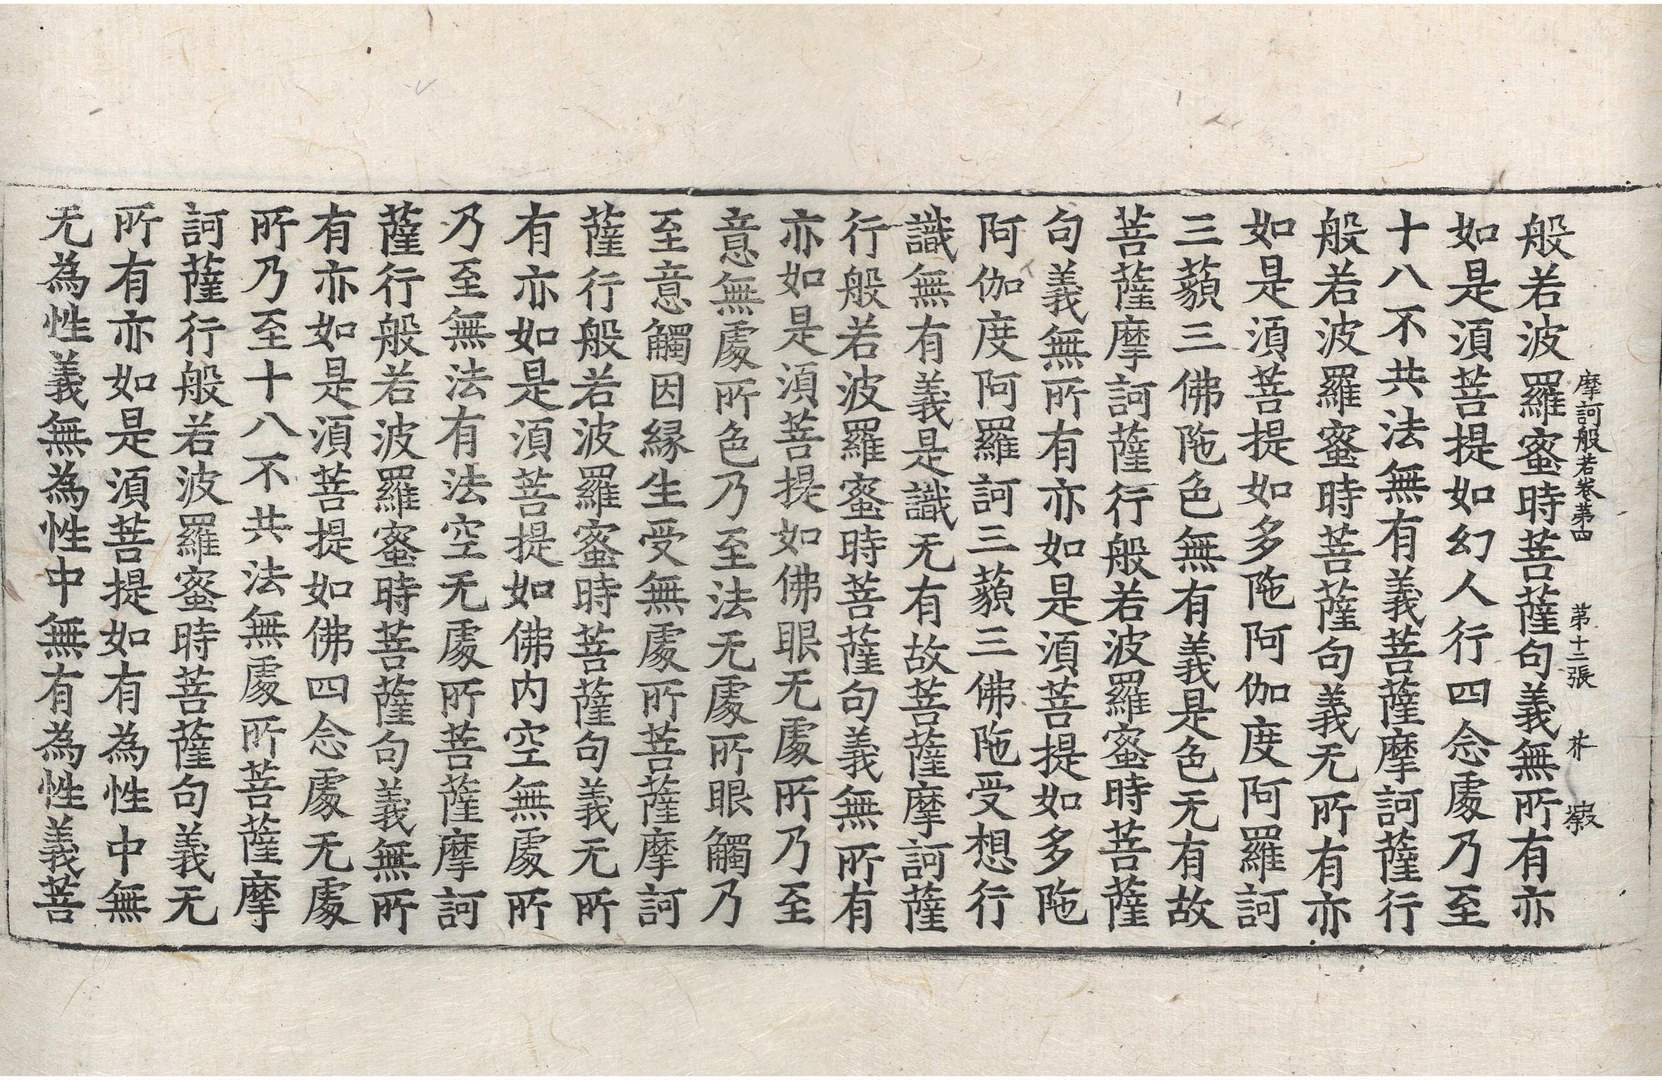 摩訶般若卷第四 第十二張
般若波羅蜜時菩薩句義無所有亦
如是湏菩提如幻人行四念處乃至
十八不共法無有義菩薩摩訶薩行
般若波羅蜜時菩薩句義无所有亦
如是湏菩提如多陁阿伽度阿羅訶
三藐三佛陁色無有義是色无有故
菩薩摩訶薩行般若波羅蜜時菩薩
句義無所有亦如是湏菩提如多陁
阿伽度阿羅訶三藐三佛陁受想行
識無有義是識无有故菩薩摩訶薩
行般若波羅蜜時菩薩句義無所有
亦如是湏菩提如佛眼无處所乃至
意無處所色乃至法无處所眼觸乃
至意觸因縁生受無處所菩薩摩訶
薩行般若波羅蜜時菩薩句義无所
有亦如是湏菩提如佛内空無處所
乃至無法有法空无處所菩薩摩訶
薩行般若波羅蜜時菩薩句義無所
有亦如是湏菩提如佛四念處无處
所乃至十八不共法無處所菩薩摩
訶薩行般若波羅蜜時菩薩句義无
所有亦如是湏菩提如有為性中無
无為性義無為性中無有為性義菩